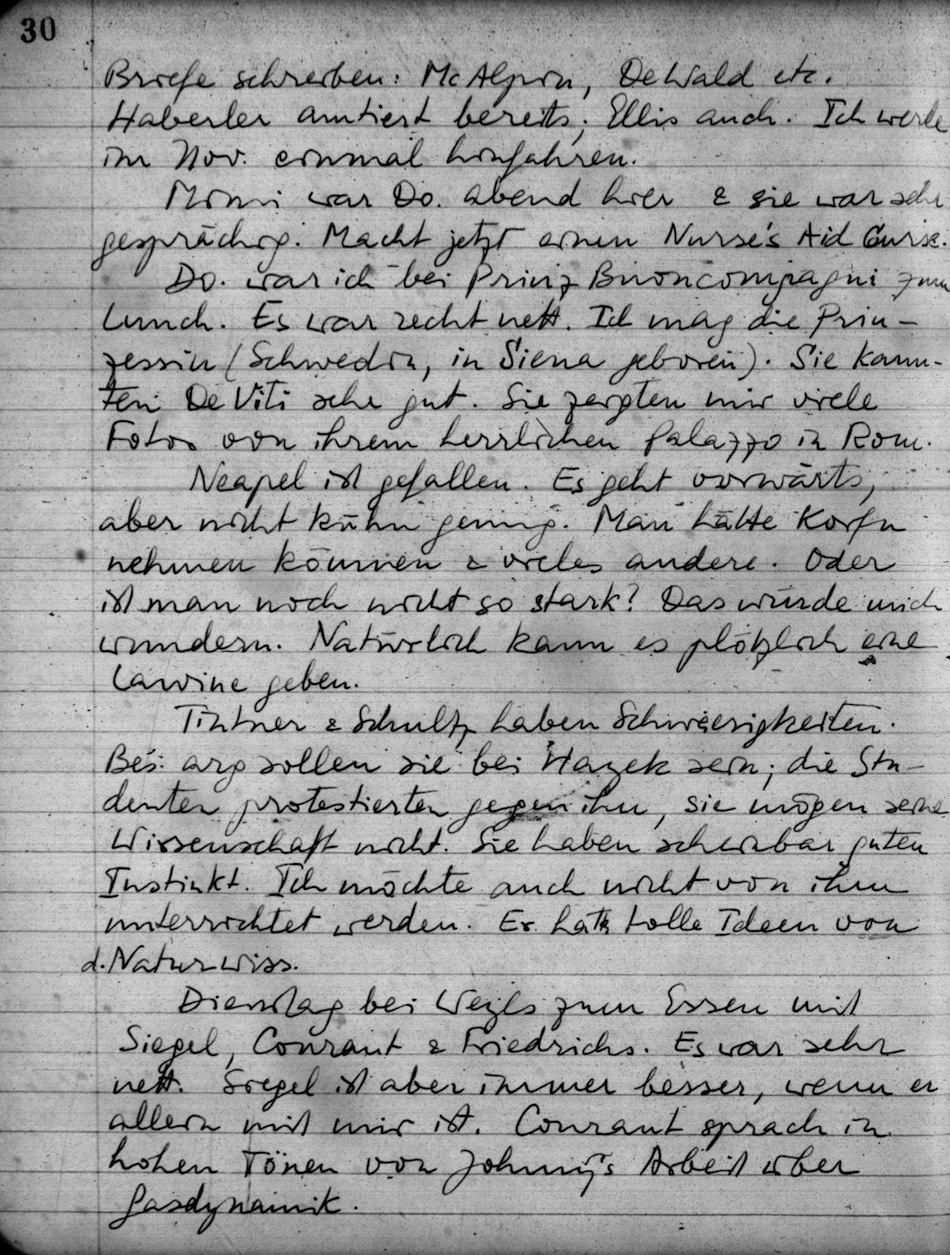 30
Briefe schreiben: McAlpin, DeWald etc.
Haberler amtiert bereits; Ellis auch. Ich werde
im Nov. einmal hinfahren.
Mimi war Do. abend hier & sie war sehr
gesprächig. Macht jetzt einen Nurse's Aid Curse.
Do. war ich bei Prinz Buoncompagni zum
Lunch. Es war recht nett. Ich mag die Prin-
zessin (Schwedin, in Siena geboren). Sie kann-
ten De Viti sehr gut. Sie zeigten mir viele
Fotos von ihrem herrlichen Palazzo in Rom.
Neapel ist gefallen. Es geht vorwärts,
aber nicht kühn genug. Man hätte Korfu
nehmen können & vieles andere. Oder
ist man noch nicht so stark? Das würde mich
wundern. Natürlich kann es plötzlich eine
Lawine geben.
Tintner & Schultz haben Schwierigkeiten.
Bes. arg sollen sie bei Hayek sein; die Stu-
denten protestierten gegen ihn, sie mögen seine
Wissenschaft nicht. Sie haben scheinbar guten
Instinkt. Ich möchte auch nicht von ihm
unterrichtet werden. Er hat tolle Ideen von
d. Naturwiss.
Dienstag bei Weyls zum Essen mit
Siegel, Courant & Friedrichs. Es war sehr
nett. Siegel ist aber immer besser, wenn er
allein mit mir ist. Courant sprach in
hohen Tönen von Johnny's Arbeit über
Gasdynamik.